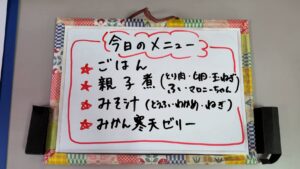 今日のメニュー
ごはん
親子煮(とり肉・卵・玉ねぎ
ふ・マロニーちゃん)
みそ汁(とうふ・わかめ・ねぎ)
みかん寒天ゼリー